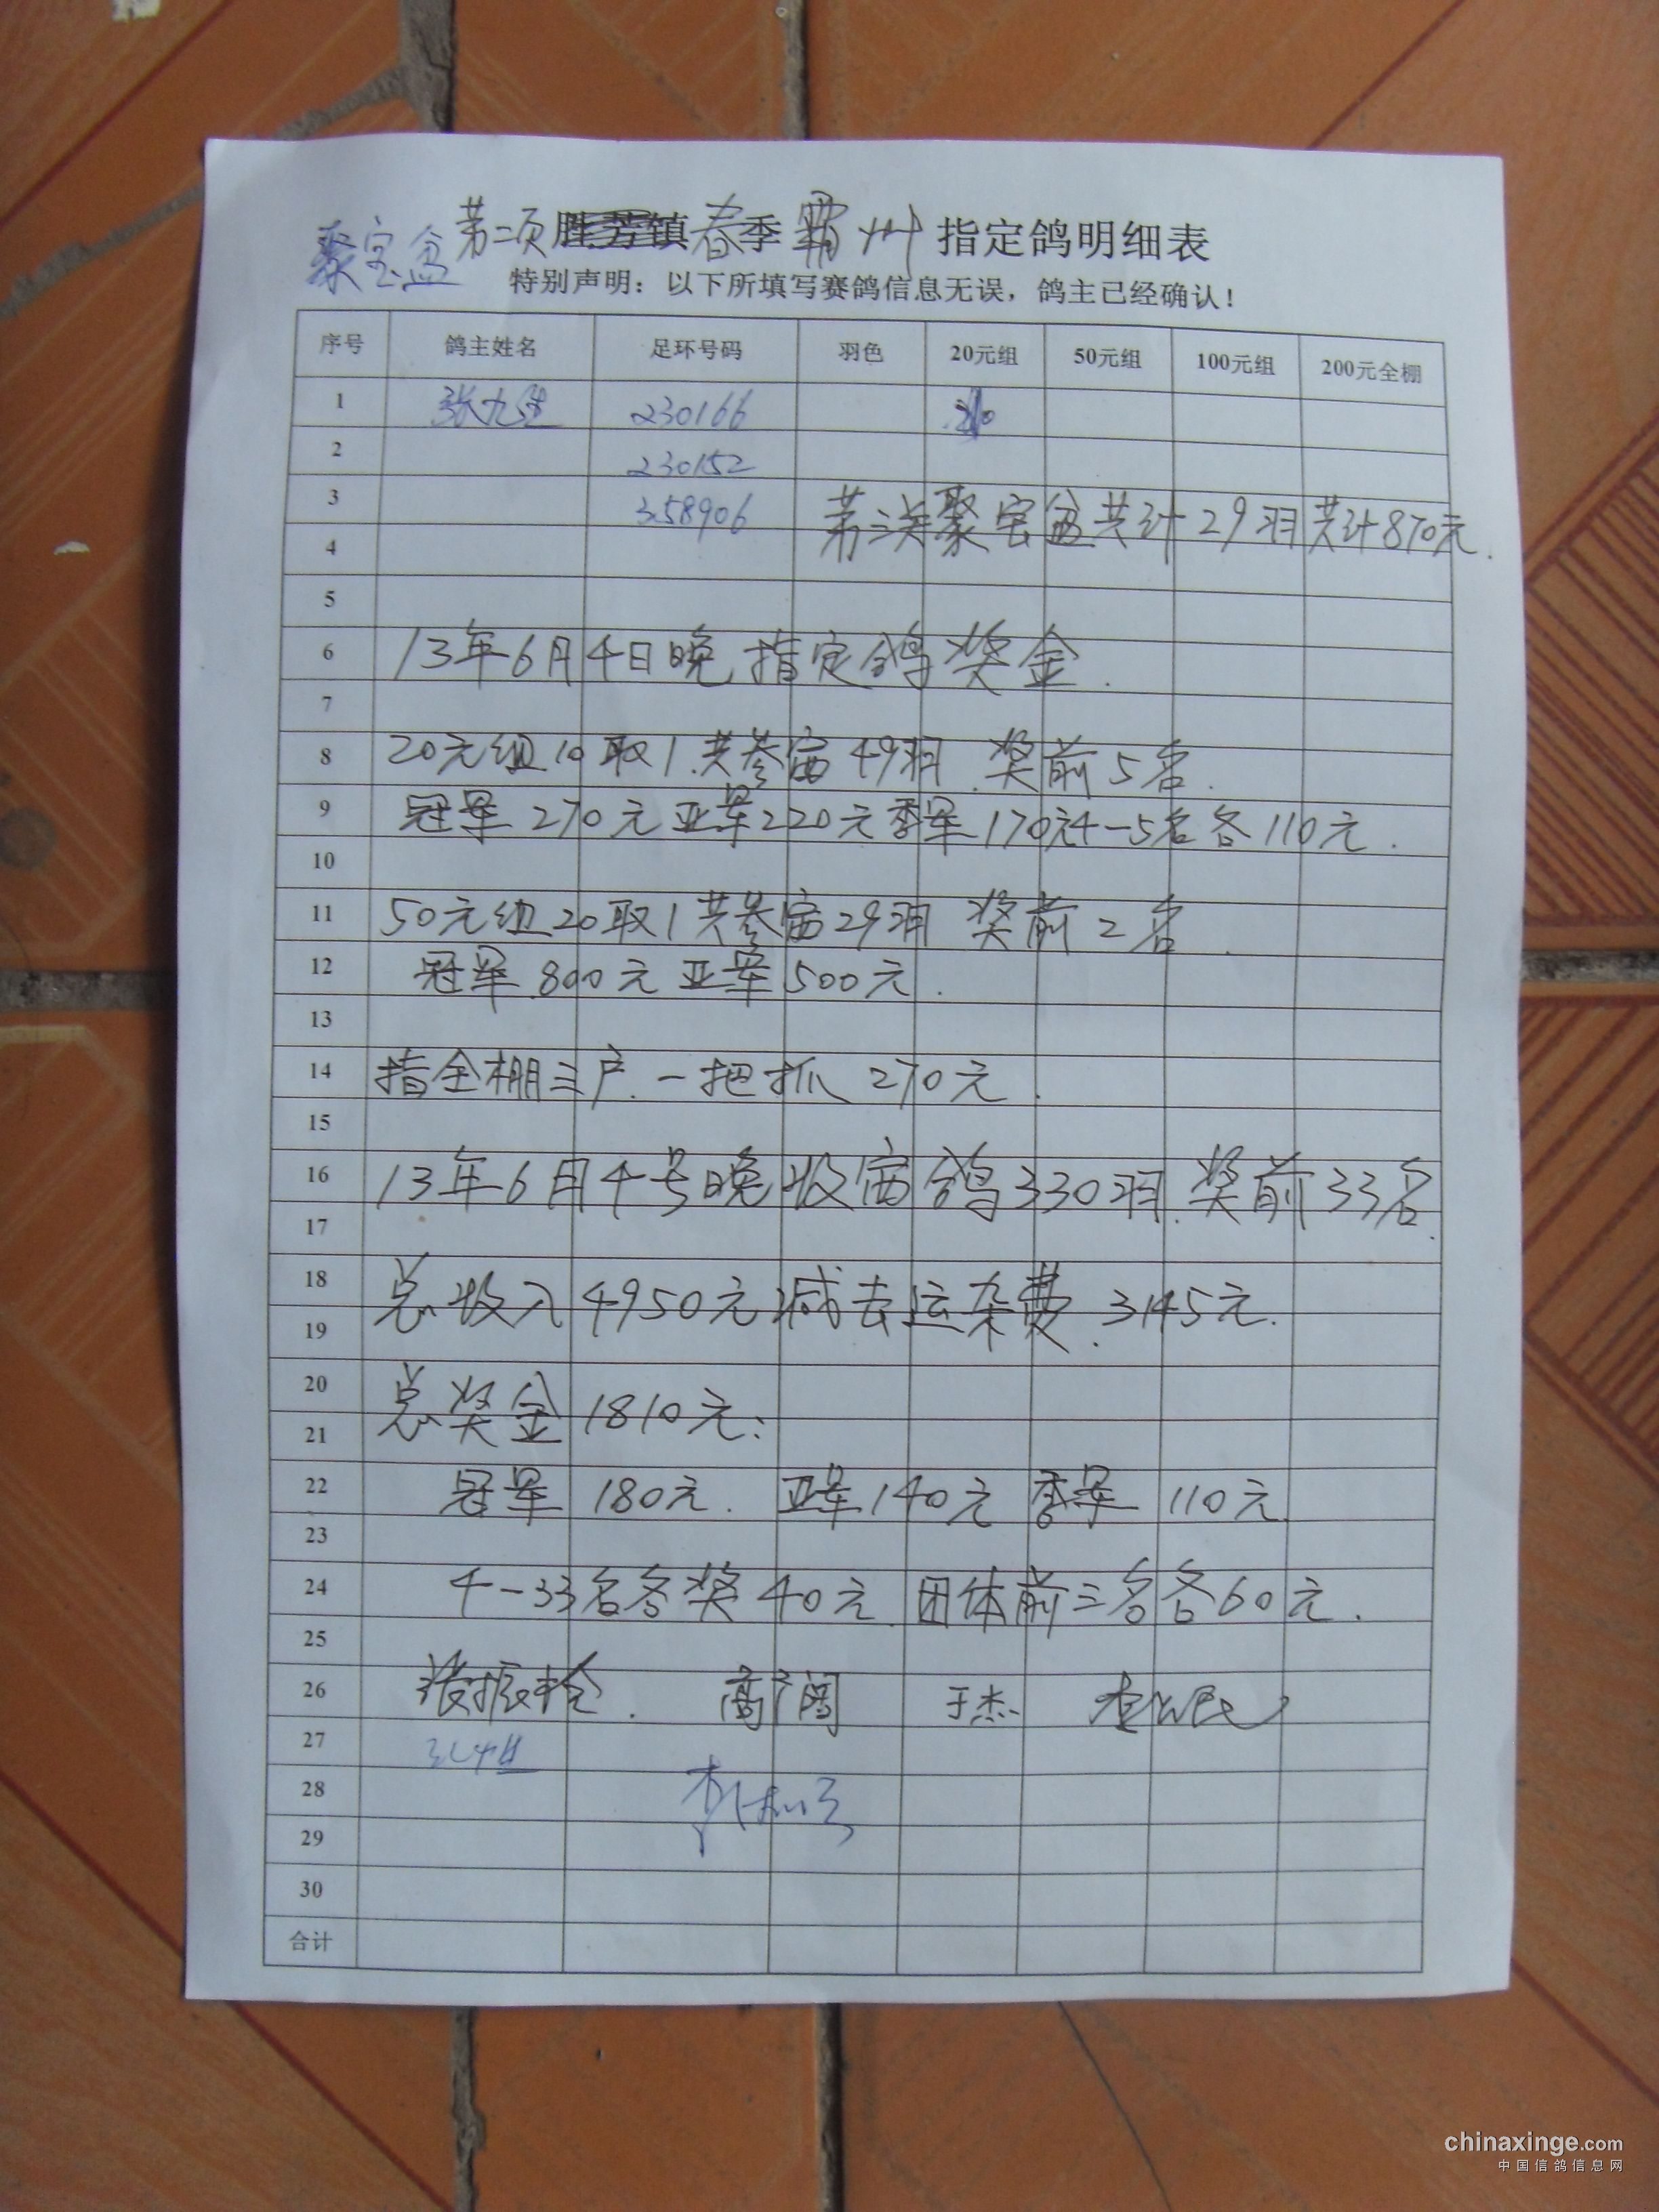 聚宝盆 第二项 胜芳镇春季霸州指定鸽明细表
特别声明：以下所填写赛鸽信息无误，鸽主已经确认！
序号 鸽主姓名 足环号码 羽色 20元组 50元组 100元组 200元全棚
1 230166
2 230152
3 358906 第二关聚宝盆共计29羽共计870元.
4
5
6 13年6月4日晚指定鸽奖金.
7
8 20元组10取1.共参赛49羽.奖前5名.
9 冠军270元亚军220元季军170元4-5名各110元.
10
11 50元组20取1共参赛29羽 奖前2名.
12 冠军.800元亚军500元.
13
14 指全棚三户.一把抓270元.
15
16 13年6月4号晚收赛鸽330羽.奖前33名.
17
18 总收入4950元减去运杂费.3145元.
19
20 总奖金1810元:
21
22 冠军180元.亚军140元季军110元
23
24 4-33名各奖40元.团体前三名各60元.
25
26 于杰
27
28
29
30
合计
chinaxinge.com
中国信鸽信息网